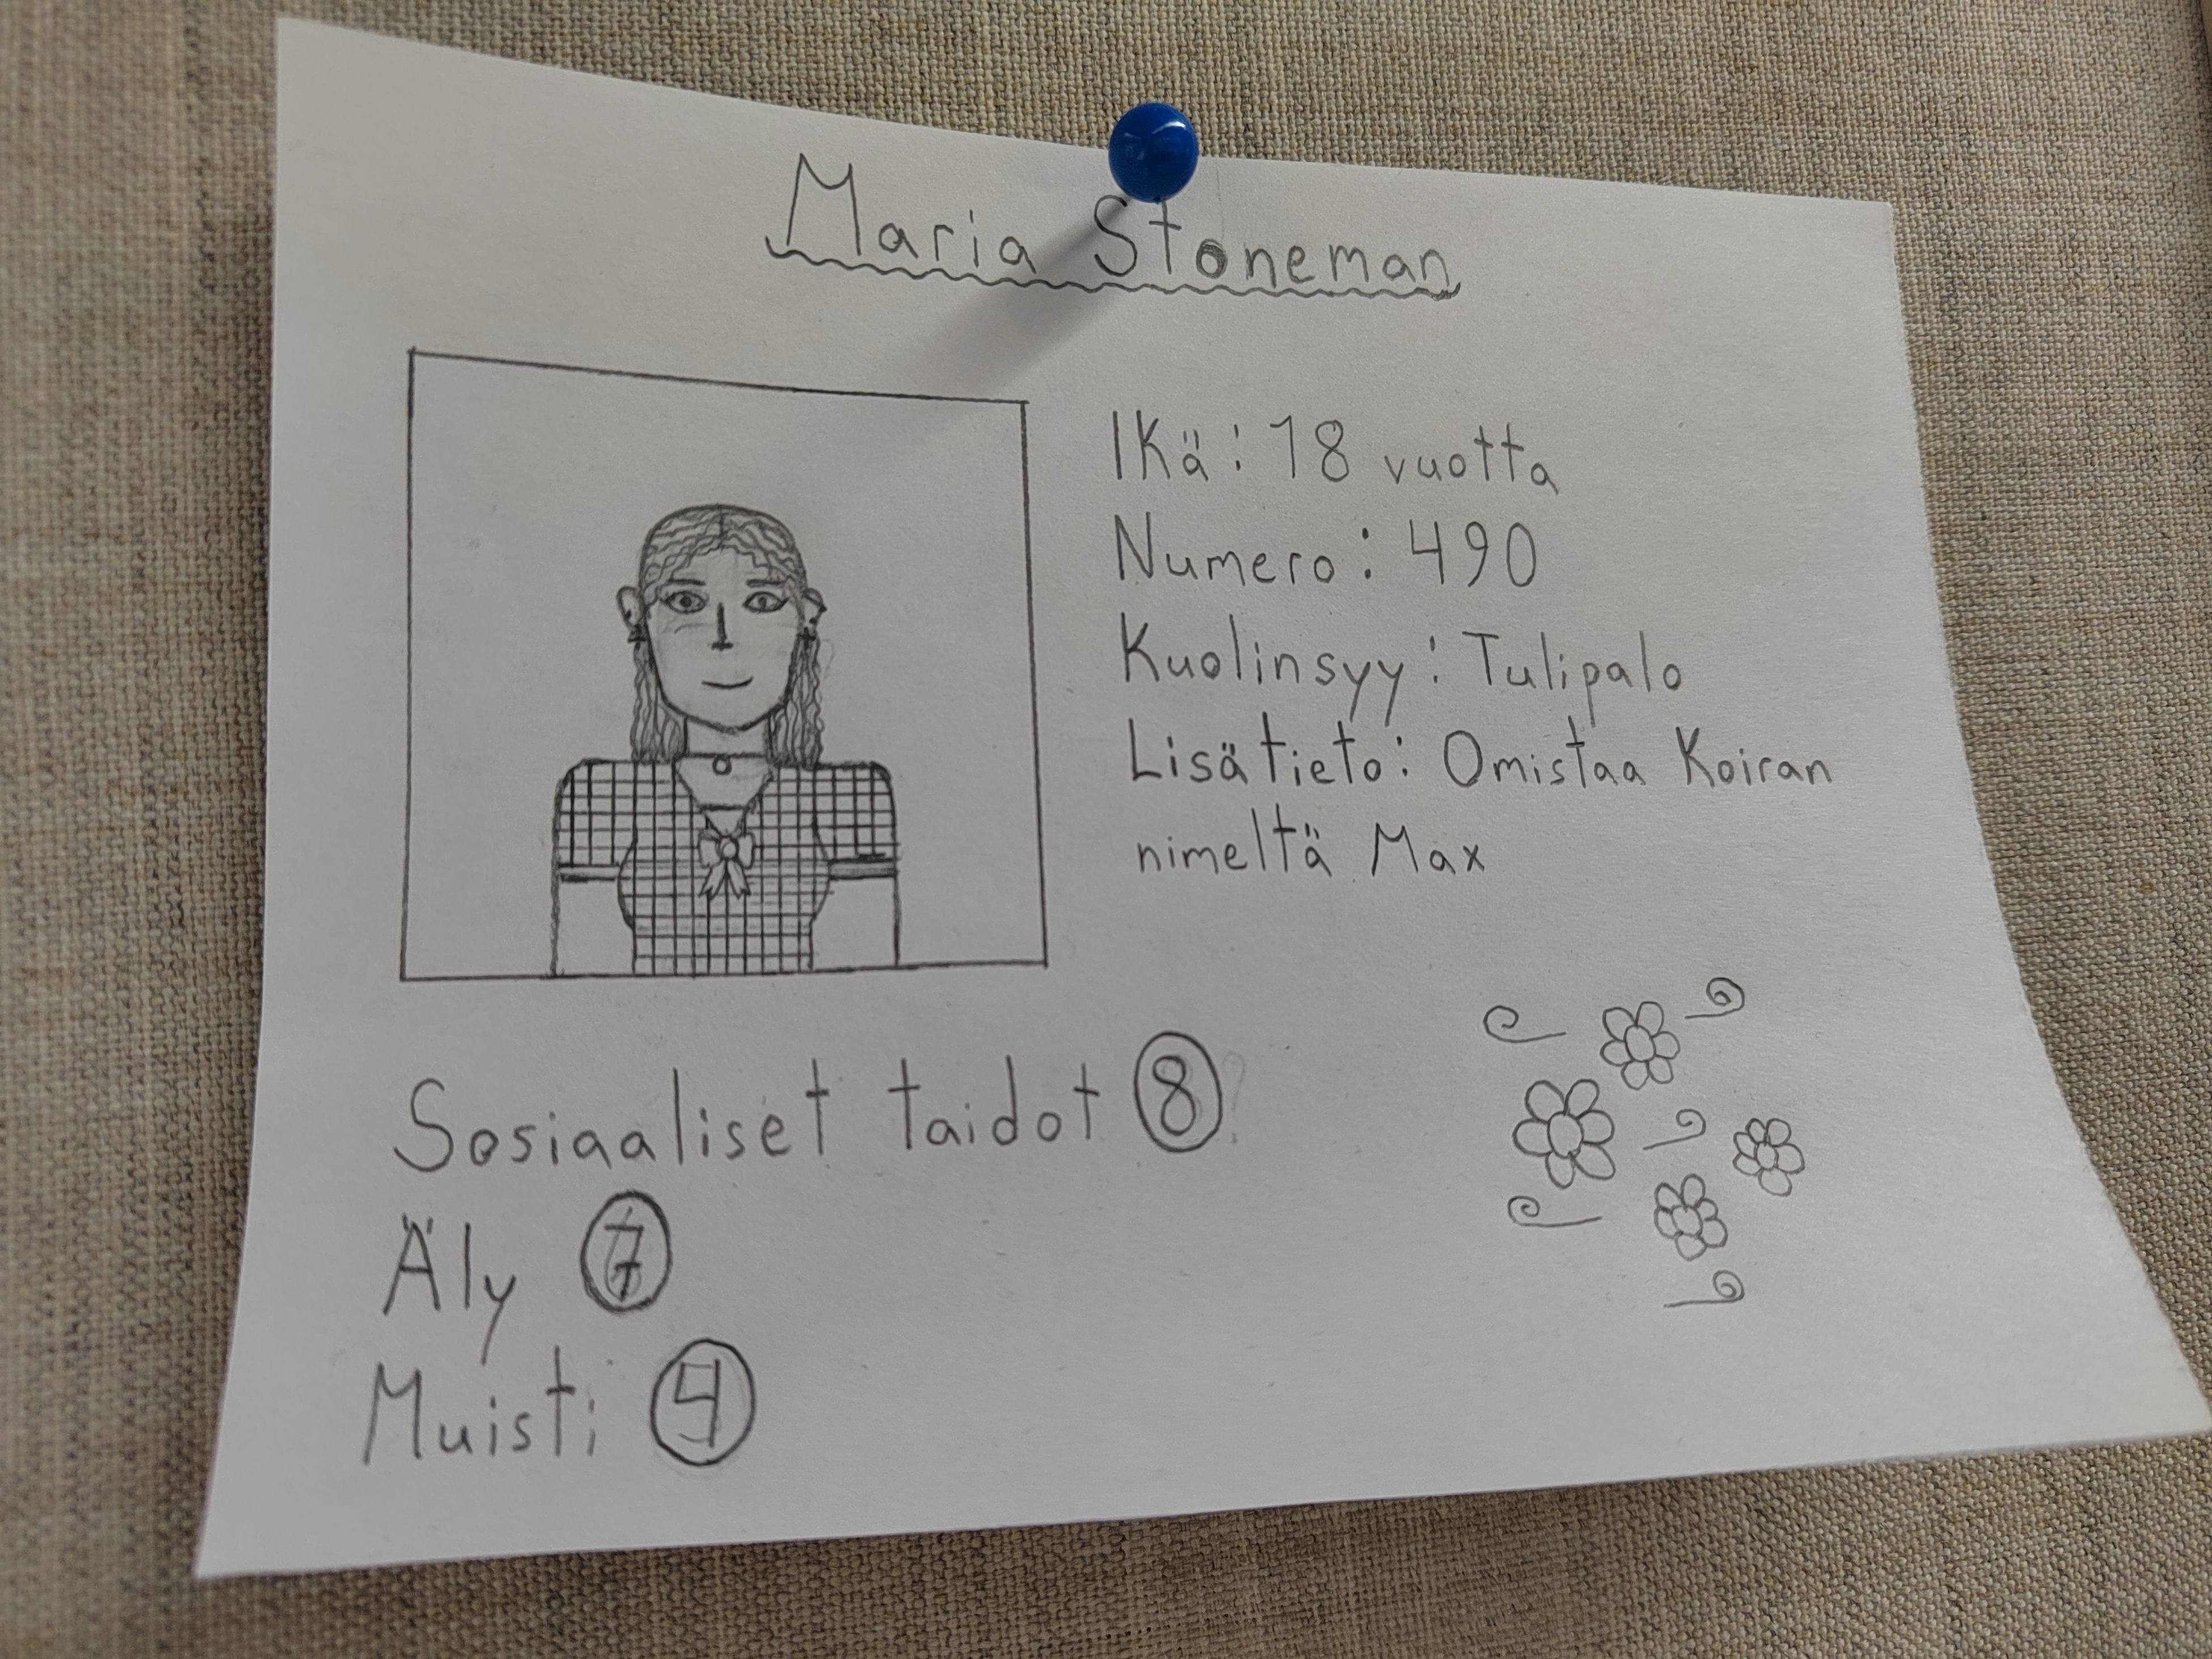 Maria Stoneman
Ikä: 18 vuotta
Numero: 490
Kuolinsyy: Tulipalo
Lisätieto: Omistaa Koiran
nimeltä Max
Sosiaaliset taidot 8
Äly 7
Muisti 4